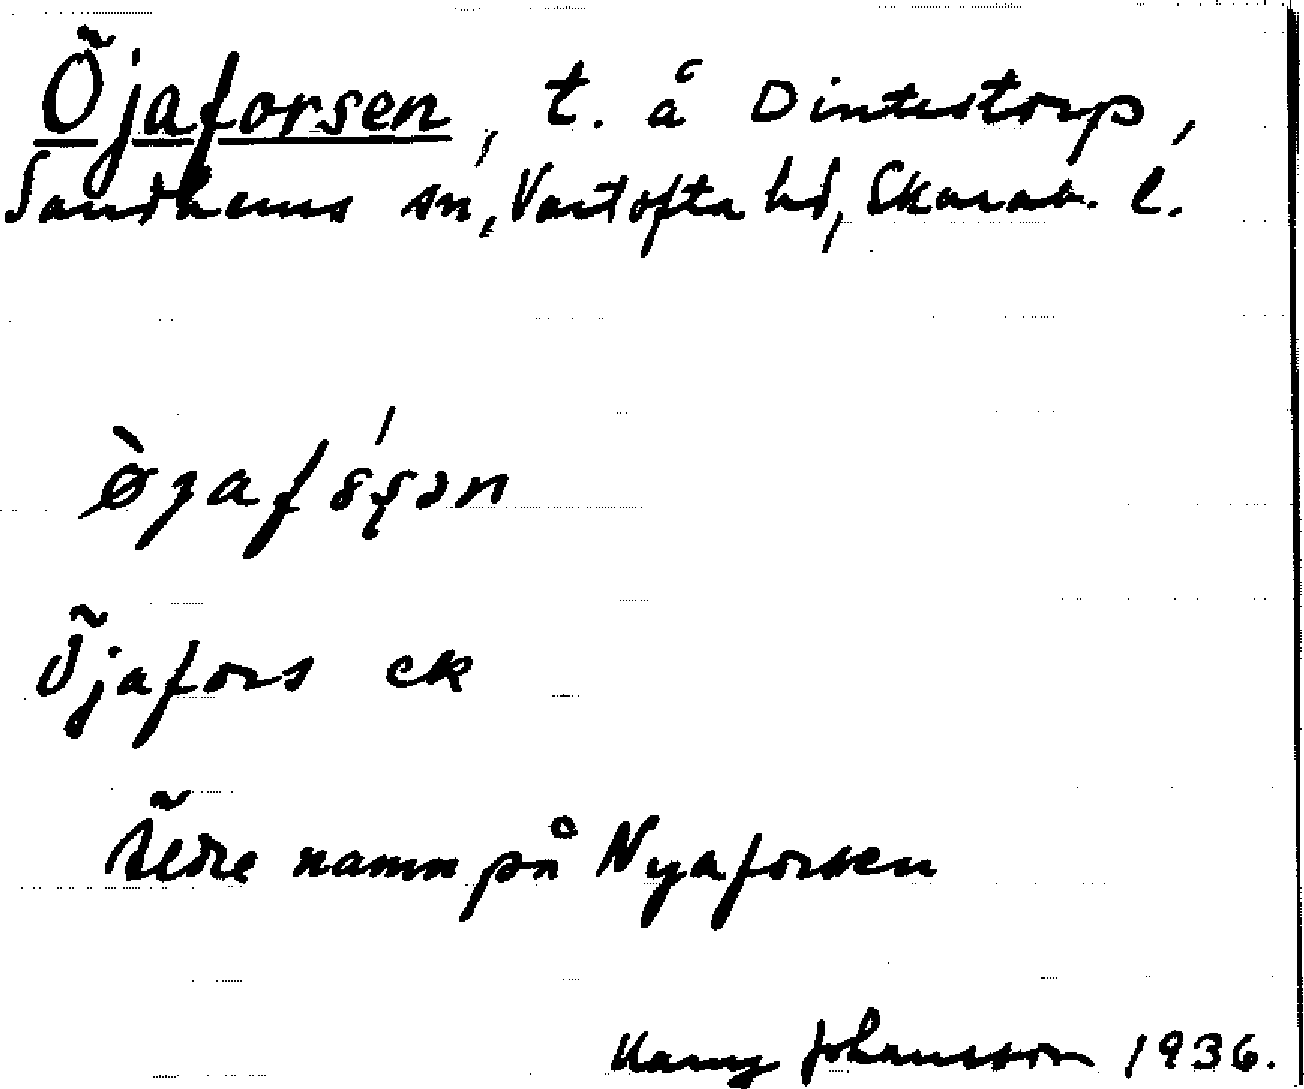 Öjaforsen, t. å Dintestorp,
Sandhems sn, Vartofta hd, Skarab. l.
Öjafors ek
Äldre namn på Nyaforsen
Harry Johansson 1936.